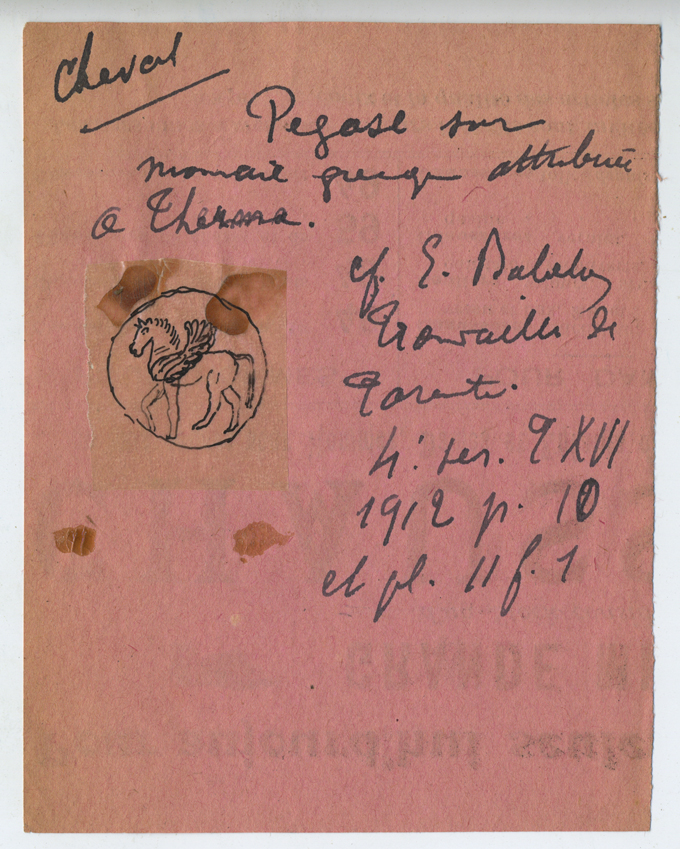 Cheval
Pegase sur
monnaie grecque attribuée
a Therma.
cf. E. Babelon
Trouvailles de
Tarente.
4e ser. T XVI
1912 p. 10
et pl. II f. 1
GRANDE